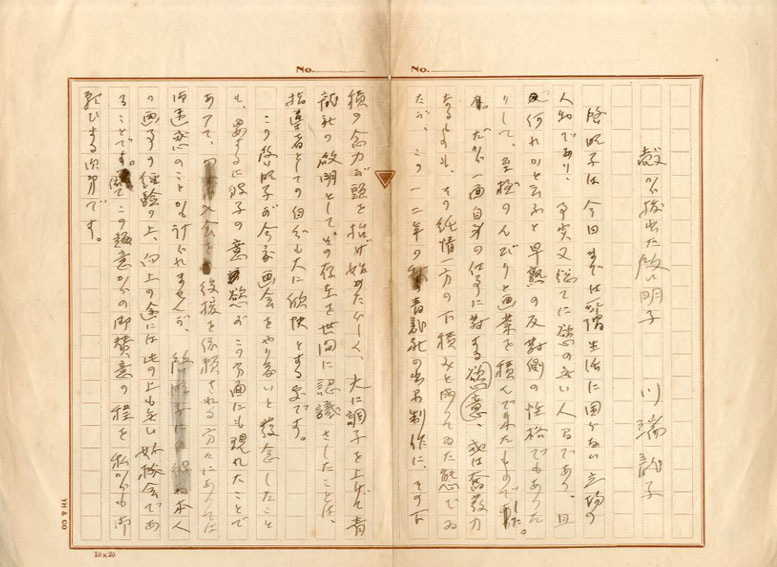 No.
No.
殻から抜出た啓明子
川端龍子
啓明子は今日までは所謂生活に困らない立場の
人物であり、事実又総てに慾のない人であり、且
何れかと云ふと早熟の反対側の性格でもあつた
りして、至極のんびりと画業を積んで来たものでした。
だから画自身の仕事に対する慾意、或は奮発力
なるものも、その純情一方の下積みと成つてゐた態でゐ
たが、この一二年の青龍社の出品制作に、その下
積の念力が頭を抬げ始めたらしく、大に調子を上げて青
龍社の啓明として、その存在を世間に認識さしたことは、
指導者としての自分も大に欣快とする処です。
この啓明子が今度画会をやり度いと発念したこと
も、要するに啓子の意慾がこの方面にも現れたことで
あつて、入会を後援を依頼される方々にあつては
迷惑のことかも計られませんが、本人
の画子の経験の上、向上の途には此の上も無い好機会であ
ることです。この趣意からの御賛意の程を私からも御
願ひする次第です。
YH & CO
20×20